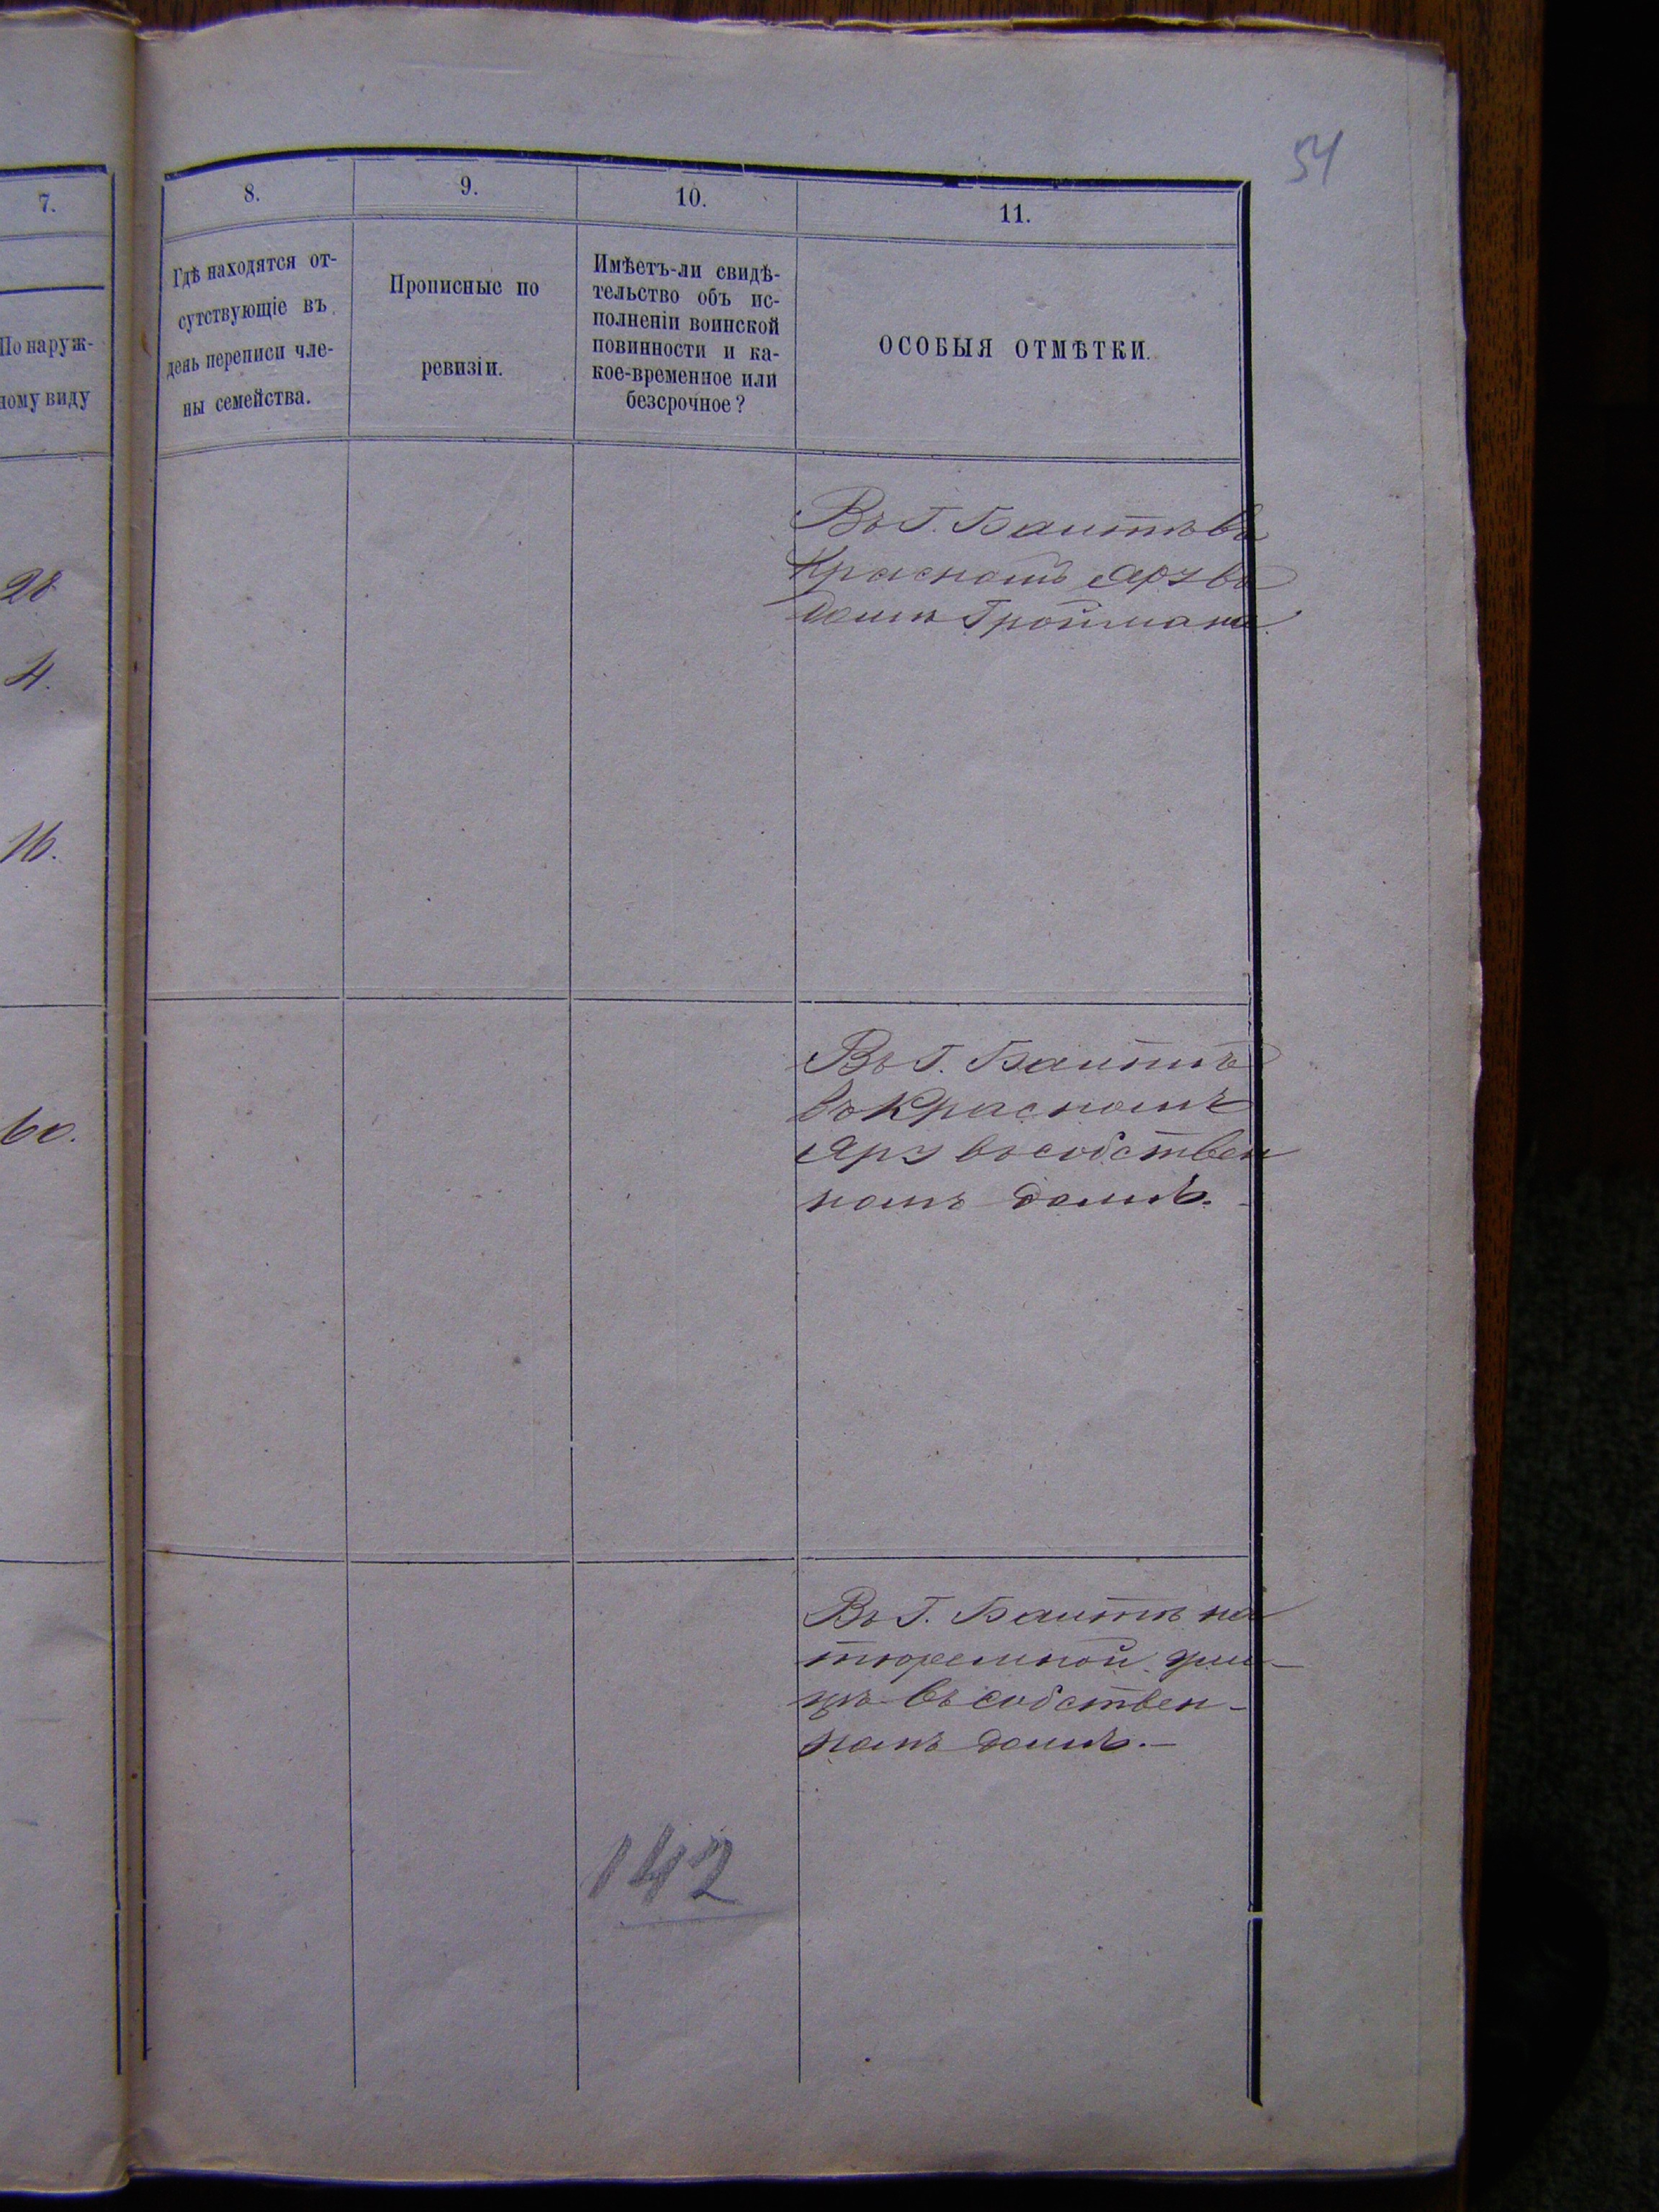 54
7.
8.
9.
10.
11.
По наруж-
ному виду
Гдѣ находятся от-
сутствующіе въ
день переписи чле-
ны семейства.
Прописные по
ревизіи.
Имѣетъ-ли свидѣ-
тельство объ ис-
полненіи воинской
повинности и ка-
кое-временное или
безсрочное?
ОСОБЫЯ ОТМѢТКИ.
28
4.
16.
60.
Въ Г. Балтѣ въ
Красномъ Яру въ
домѣ Гройсмана
Въ Г. Балтѣ
въ Красномъ
Яру въ собствен
номъ домѣ.
Въ Г. Балтѣ на
тюремной ули-
цѣ въ собствен-
номъ домѣ.—
142